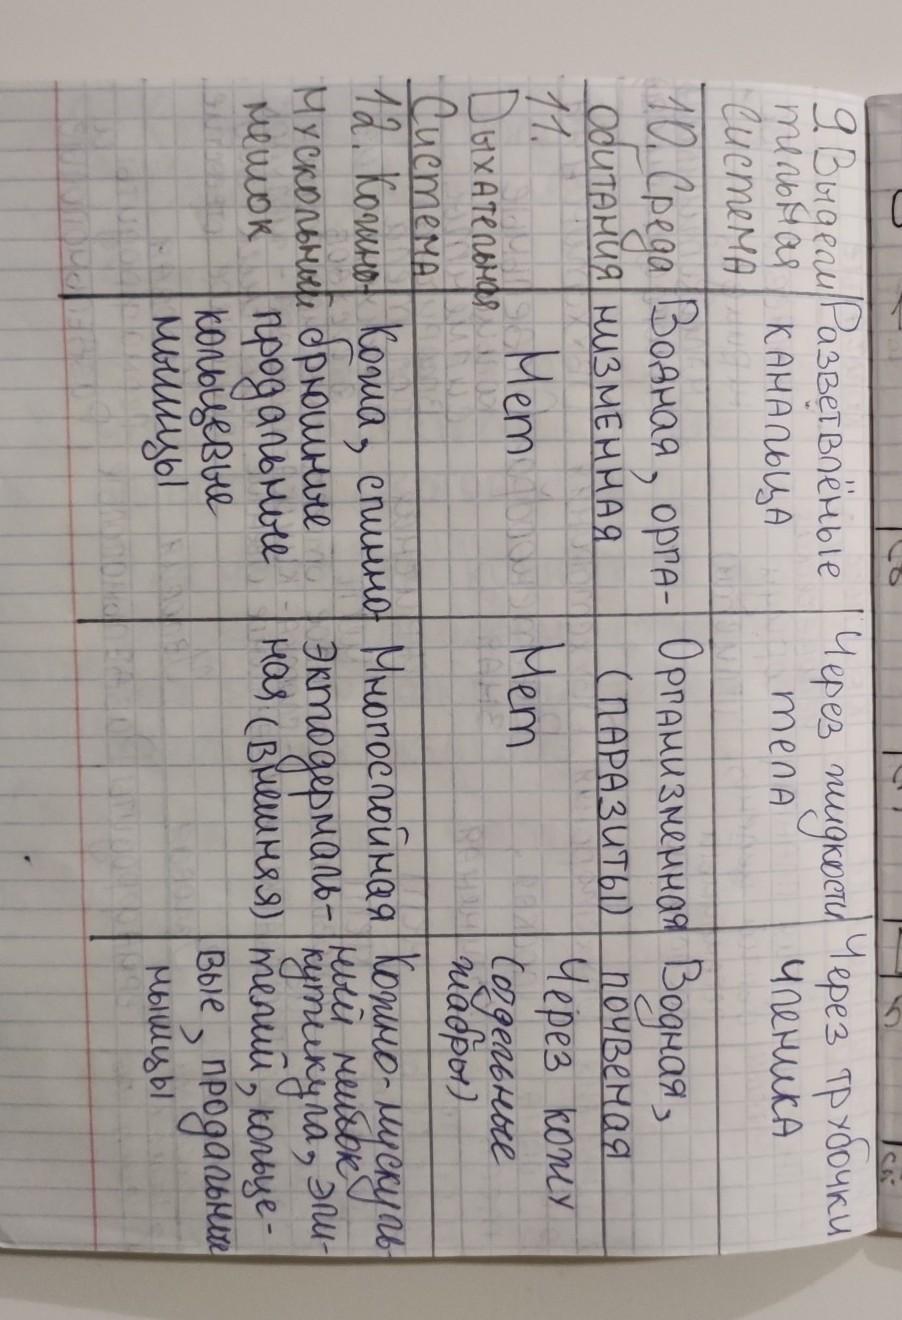 9. Выдели
тельная
Система
Разветвлёные
канальца
Через жидкости
тела
Через трубочки
членика
10. Среда
обитания
Водная, орга-
низменная
Организменная
(паразиты)
Водная,
почвеная
11.
Дыхательная
Система
Нет
Нет
Через кожу
(отдельные
жабры)
12. Кожно-
Мускольный
мешок
Кожа, спинно
брюшные
продальные
кольцевые
мышцы
Многослойная
эктодермаль-
ная (внешняя)
Кожно-мускуль
ный мешок
кутикула, эпи-
телий, кольце-
вые, продальные
мышцы